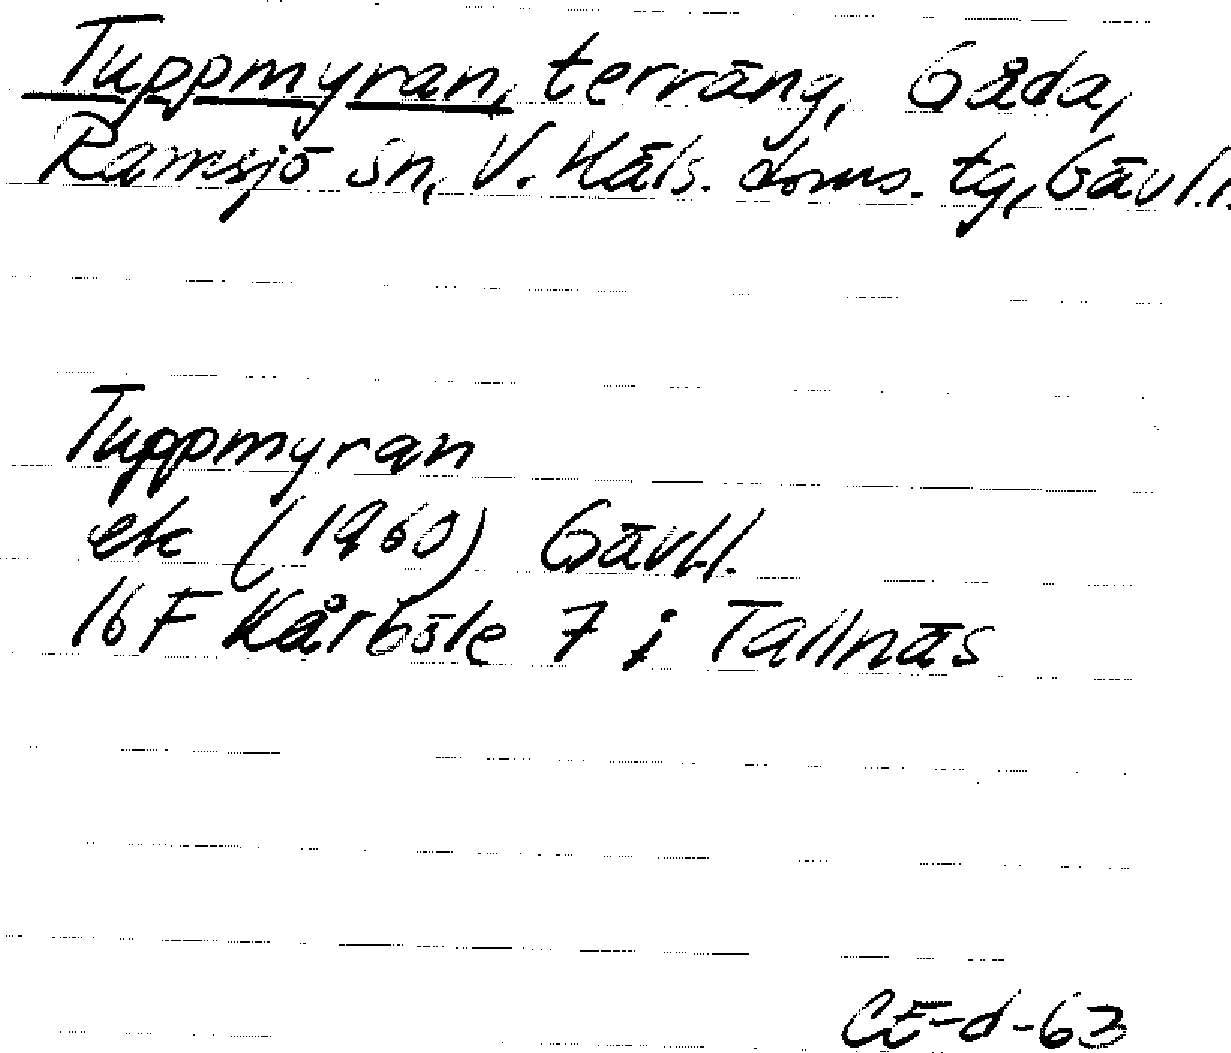 Tuppmyran, terräng, Gåda,
Ramsjö sn, V. Häls. doms. tg, Gävl.l.
Tuppmyran
ek (1960) Gävl.l.
16 F Kårböle 7 j Tallnäs
CE-d-63